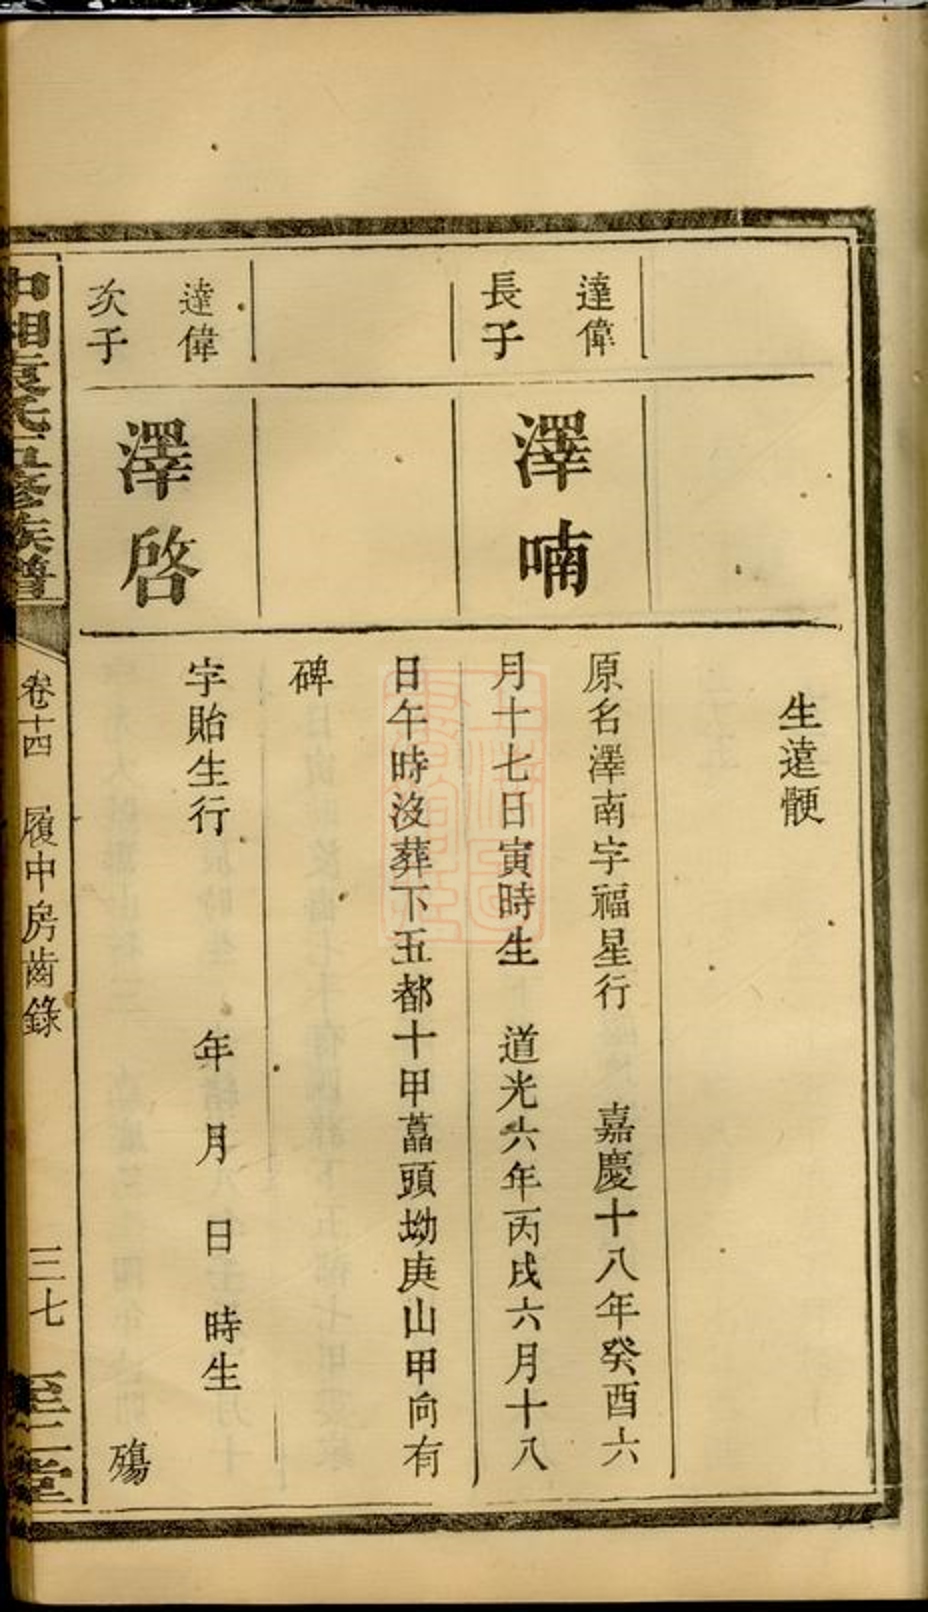 生達骾
達偉
長子
澤喃
原名澤南字福星行　嘉慶十八年癸酉六
月十七日寅時生　道光六年丙戌六月十八
日午時沒葬下五都十甲藠頭坳庚山甲向有
碑
達偉
次子
澤啓
字貽生行　　年　月　日　時生
殤
中湘袁氏五修族譜
卷十四　履中房齒錄
三七　至二堂